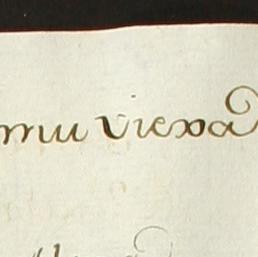 mu viexa